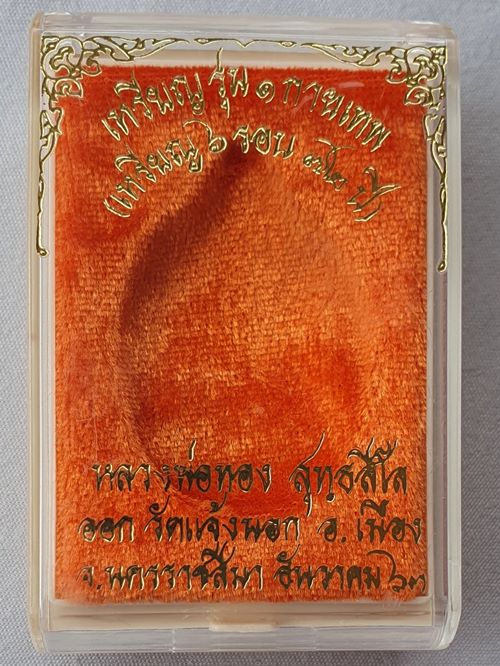 เหรียญ รุ่น ๑ กานเทพ
(เหรียญ ๖ รอบ ๗๒ ปี)
หลวงพ่อทอง สุทธสีโล
ออก วัดแจ้งนอก อ.เมือง
จ.นครราชสีมา ธันวาคม ๖๓